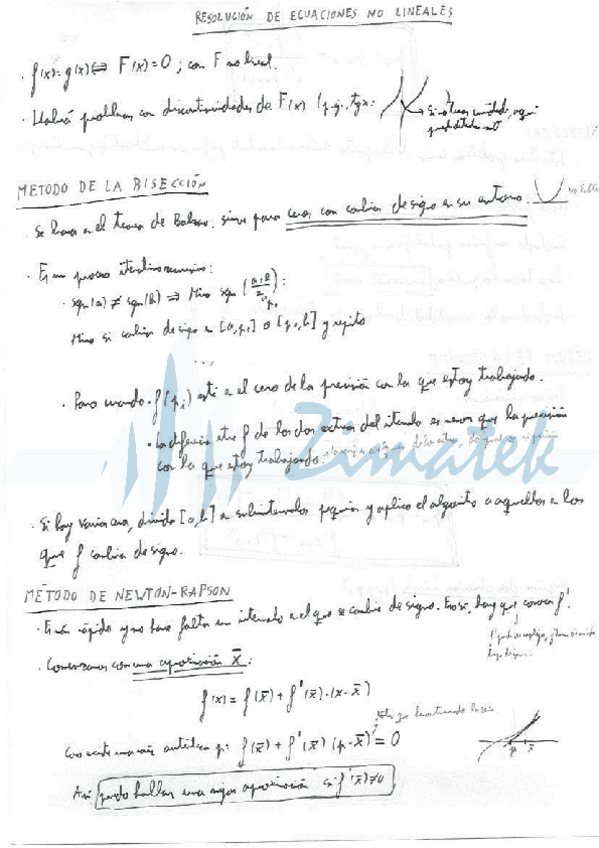 RESOLUCIÓN DE ECUACIONES NO LINEALES
· f(x)=g(x) ⇔ F(x)=0 ; con F no lineal.
· Habrá problemas con discontinuidades de F(x) (p.ej. tgx:
Si no tienes cuidado, aquí
METODO DE LA BISECCIÓN
· Se basa en el teorema de Bolzano. sirve para ceros con cambio de signo en su entorno.
· Es un proceso iterativo :
· sgn(a) ≠ sgn(b) ⇒ Miro sgn (a+b/2) :
p₁
Miro si cambia de signo en [a,p₁] o [p₁,b] y repito
...
· Paro cuando · f(pᵢ) esté en el cero de la precisión con la que estoy trabajando.
· La diferencia entre f de los dos extremos del intervalo es menor que la precisión
con la que estoy trabajando.
Zimatek
· Si hay varios ceros, divido [a,b] en subintervalos pequeños y aplico el algoritmo a aquellos en los
que f cambia de signo.
MÉTODO DE NEWTON-RAPSON
· Es más rápido y no hace falta un intervalo en el que se cambie de signo. Eso sí, hay que conocer f'.
· Comenzamos con una aproximación x̄ :
f(x) = f(x̄) + f'(x̄)·(x-x̄)
Como existe una raíz auténtica p: f(x̄) + f'(x̄) (p-x̄) = 0
p x̄
Así puedo hallar una mejor aproximación si f'(x̄)≠0